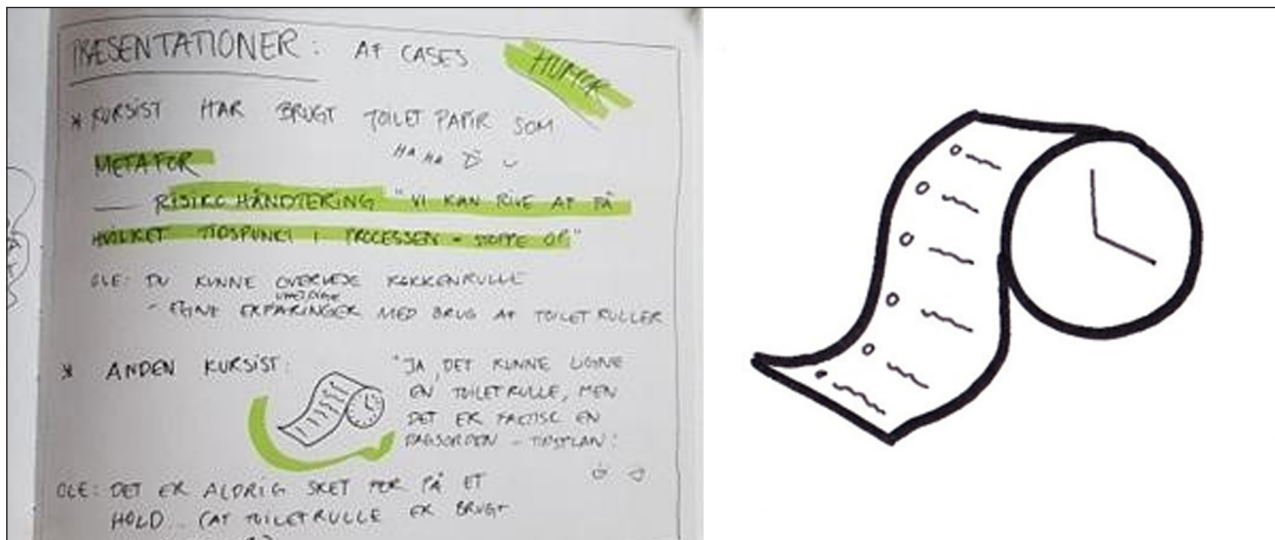 PRÆSENTATIONER: AF CASES
HUMOR
* KURSIST HAR BRUGT TOILET PAPIR SOM
METAFOR
HA HA
RISIKO HÅNDTERING "VI KAN RIVE AF PÅ
HVILKET TIDSPUNKT I PROCESSEN - STOPPE OP"
OLE: DU KUNNE OVERVEJE KØKKENRULLE
MED BRUG AF TOILET RULLER
* ANDEN KURSIST:
"JA, DET KUNNE LIGNE
EN TOILETRULLE, MEN
DET ER FAKTISK EN
DAGSORDEN - TIDSPLAN!
OLE: DET ER ALDRIG SKET FØR PÅ ET
HOLD... (AT TOILETRULLE ER BRUGT